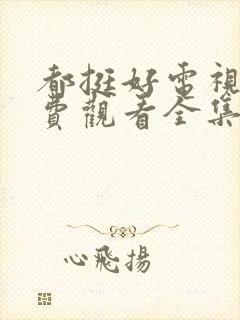 都挺好電視
費觀看全集
心飛揚